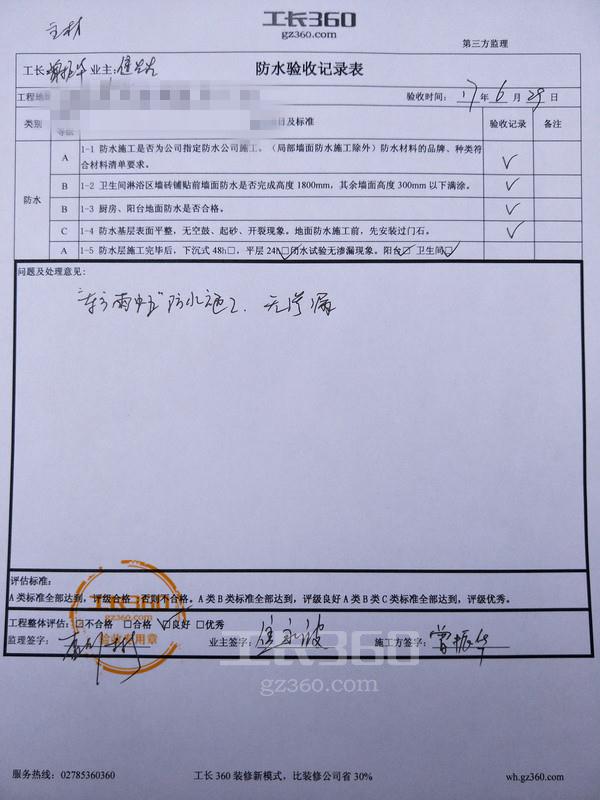 主材
工长360
gz360.com
第三方监理
工长 业主:
防水验收记录表
工程地 验收时间: 17 年 6 月 29 日
类别 等级 项目及标准 验收记录 备注
防水
A 1-1 防水施工是否为公司指定防水公司施工。（局部墙面防水施工除外）防水材料的品牌、种类符
合材料清单要求。 ✓
B 1-2 卫生间淋浴区墙砖铺贴前墙面防水是否完成高度 1800mm，其余墙面高度 300mm 以下满涂。 ✓
B 1-3 厨房、阳台地面防水是否合格。 ✓
C 1-4 防水基层表面平整，无空鼓、起砂、开裂现象。地面防水施工前，先安装过门石。 ✓
A 1-5 防水层施工完毕后，下沉式 48h□，平层 24h☑闭水试验无渗漏现象。阳台☑ 卫生间☑
问题及处理意见:
"东方雨虹"防水施工、无渗漏
工长360
gz360.com
评估标准:
A 类标准全部达到，评级合格 否则不合格。A 类 B 类标准全部达到，评级良好 A 类 B 类 C 类标准全部达到，评级优秀。
工程整体评估: 不合格 □合格 ☑良好 □优秀
监理签字: 业主签字: 施工方签字: 曾振华
工长360
验收专用章
工长360
gz360.com
服务热线: 02785360360 工长 360 装修新模式，比装修公司省 30% wh.gz360.com